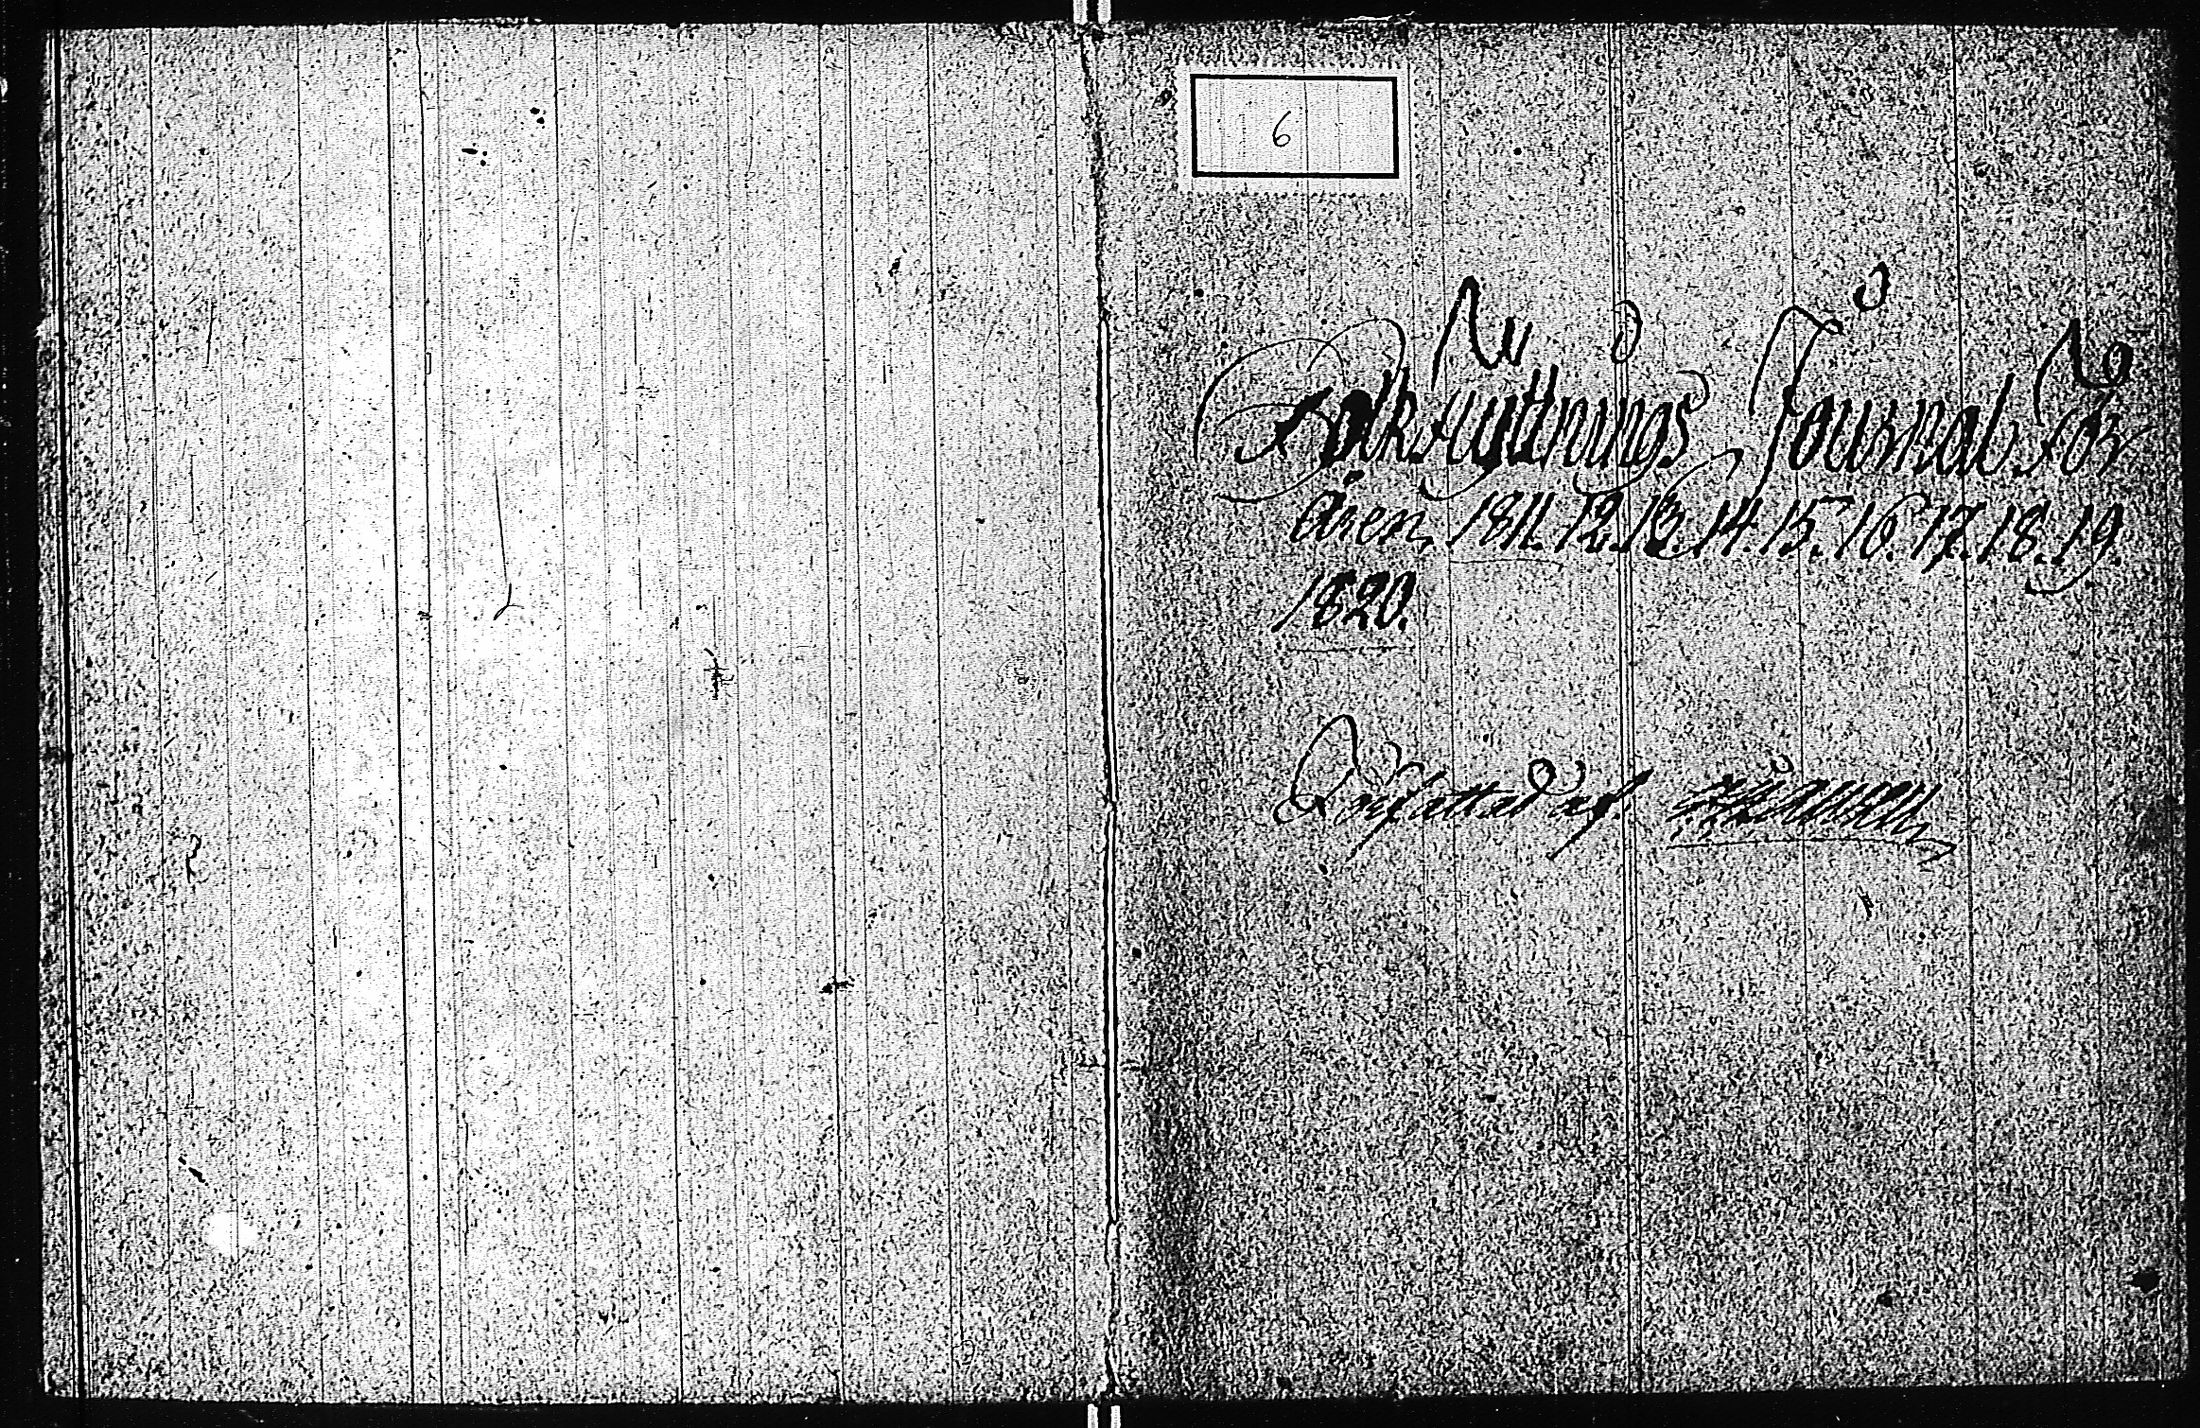 6
Folk Flyttnings Journal För
åren, 1811. 12. 13. 14. 15. 16. 17. 18. 19.
1820.
Författad af.